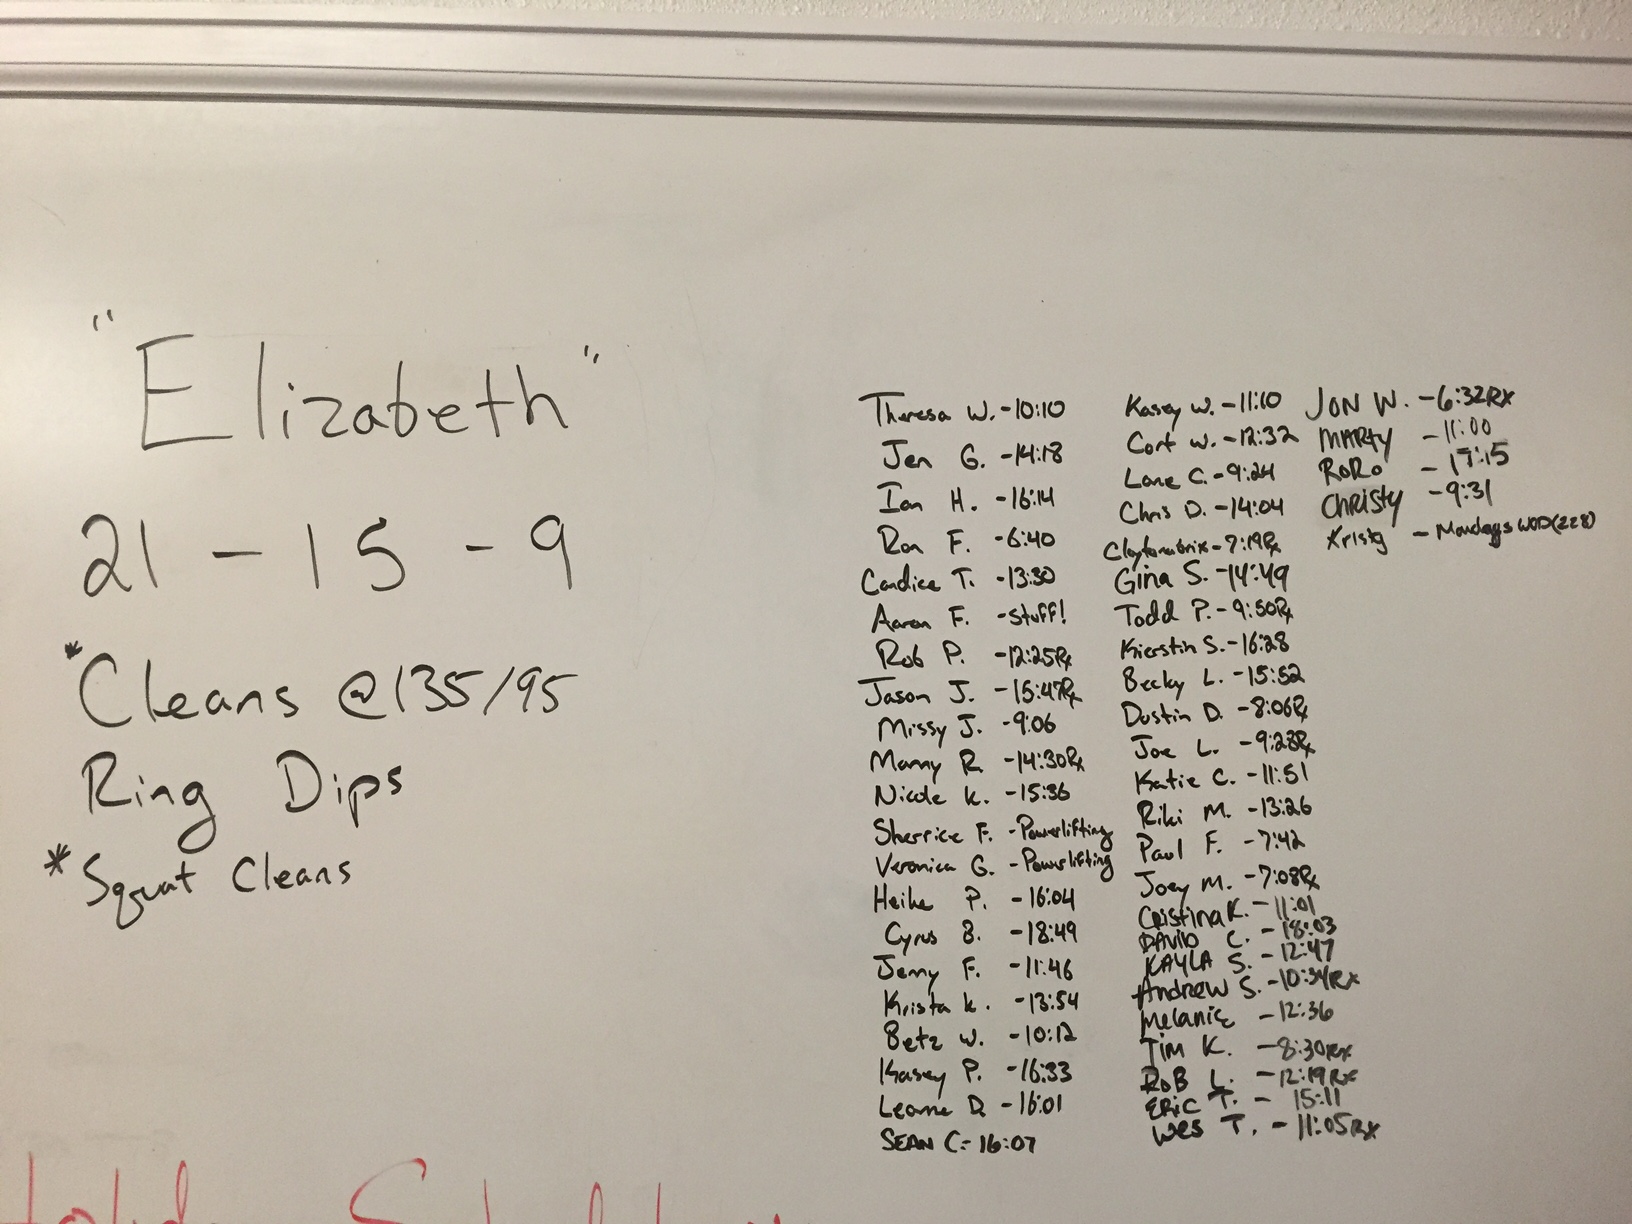 "Elizabeth"
21 - 15 - 9
*Cleans @135/95
Ring Dips
*Squat Cleans
Theresa W. - 10:10
Jen G. - 14:18
Ian H. - 16:14
Ron F. - 6:40
Candice T. - 13:30
Aaron F. - Stuff!
Rob P. - 12:25Rx
Jason J. - 15:47Rx
Missy J. - 9:06
Manny R - 14:30Rx
Nicole K. - 15:36
Sherrice F. - Powerlifting
Veronica G. - Powerlifting
Heike P. - 16:04
Cyrus B. - 18:49
Jenny F. - 11:46
Krista K. - 13:54
Betz W. - 10:12
Kasey P. - 16:33
Leanne D. - 16:01
SEAN C. - 16:07
Kasey W. - 11:10
Cort W. - 12:32
Lane C. - 9:24
Chris D. - 14:04
Claytonatrix - 7:19Rx
Gina S. - 14:49
Todd P. - 9:50Rx
Kierstin S. - 16:28
Becky L. - 15:52
Dustin D. - 8:06Rx
Joe L. - 9:28Rx
Katie C. - 11:51
Riki M. - 13:26
Paul F. - 7:42
Joey M. - 7:08Rx
Cristina K. - 11:01
DAVID C. - 18:03
KAYLA S. - 12:47
Andrew S. - 10:34Rx
Melanie - 12:36
Tim K. - 8:30Rx
RoB L. - 12:19Rx
ERIC T. - 15:11
Wes T. - 11:05Rx
JON W. - 6:32Rx
MARTY - 11:00
RoRo - 17:15
CHRISTY - 9:31
Kristy - Mondays WOD(228)